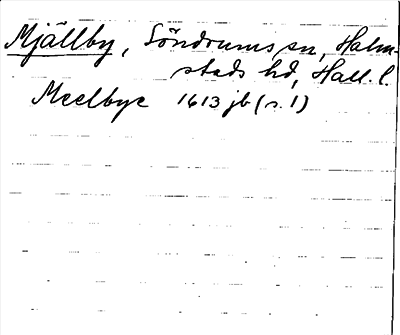 Mjällby, Söndrums sn, Halm-
stads hd, Hall. l.
Meelbye 1613 jb (s. 1)